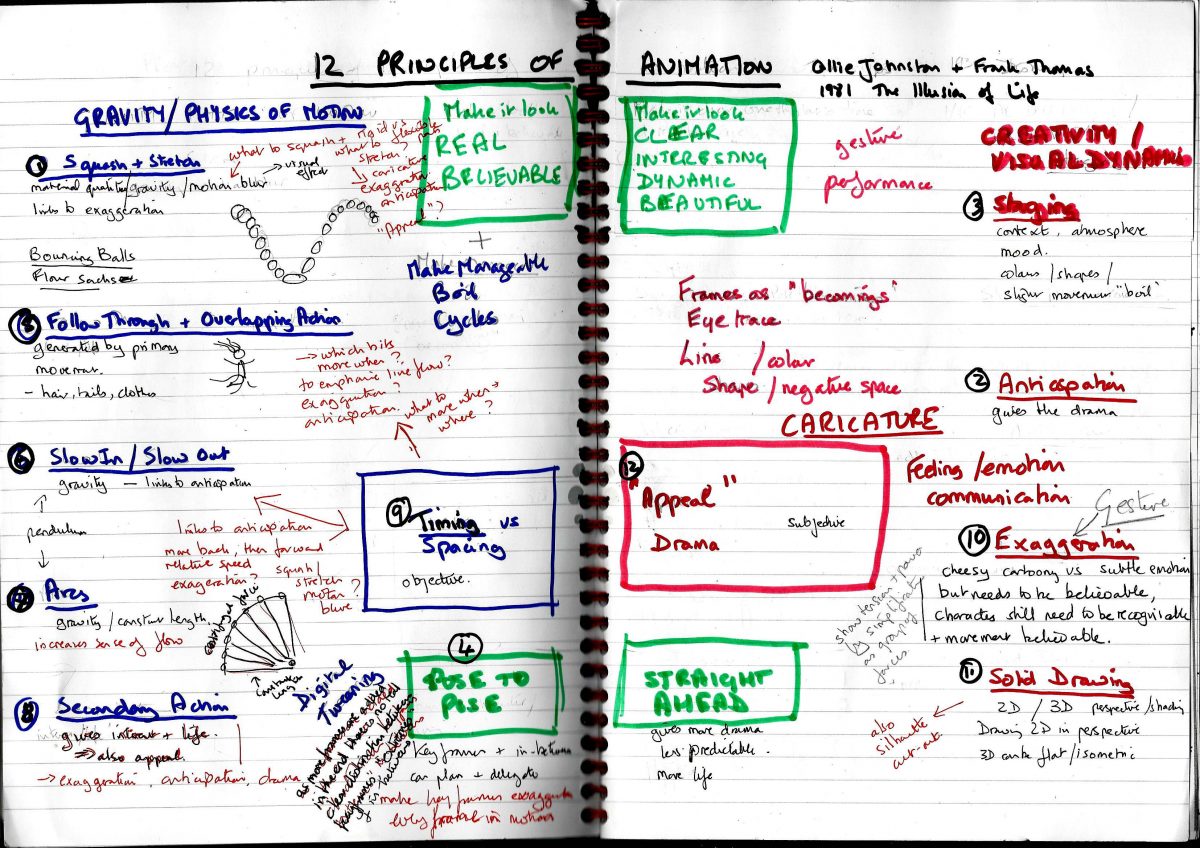 12 PRINCIPLES OF ANIMATION
Ollie Johnston + Frank Thomas
1981 The Illusion of Life
GRAVITY/PHYSICS OF MOTION
Make it look
REAL
BELIEVABLE
+
Make Manageable
Boil
Cycles
1 Squash + Stretch
material quality/gravity/motion blur
→ visual effect
links to exaggeration
what to squash +
what to stretch.
rigid vs
flexible
caricature
exaggeration
anticipation
"Appeal"?
Bouncing Balls
Flour sacks
Follow Through + Overlapping Action
generated by primary
movement.
- hair, tails, clothes
→ which bits
move when?
to emphasise line flow?
exaggeration?
anticipation.
what to
move when →
where?
6 Slow In / Slow Out
gravity — links to anticipation
pendulum
links to anticipation
more back, then forward
relative speed
exageration?
squash/
stretch
motion ?
blur
9 Timing vs
Spacing
objective.
Arcs
gravity / constant length.
increases sense of flow
centrifugal force
constant
length
8 Secondary Action
gives interest + life.
⇒ also appeal.
→ exaggeration, anticipation, drama
Digital
Tweening
as more frames are added
in the end there is no real
clear distinction between
4
POSE TO
POSE
Key frames + in-betweens
can plan + delegate
make key frames exaggerated
Make it look
CLEAR
INTERESTING
DYNAMIC
BEAUTIFUL
gesture
performance
CREATIVITY /
VISUAL DYNAMIC
3 Staging
context, atmosphere
mood.
colours / shapes /
slight movement "boil"
Frames as "becomings"
Eye trace
Line / colour
Shape / negative space
CARICATURE
2 Anticaspation
gives the drama
12
"Appeal"
Drama
subjective
Feeling /emotion
communication
Gesture
10 Exaggeration
cheesy cartoony vs subtle emotion
but needs to be believable,
Characters still need to be recognisable
+ movement believable.
show tension + power
simplify
as graphic
forces.
STRAIGHT
AHEAD
gives more drama
less predictable.
more life
11 Solid Drawing
2D / 3D perspective/shading
Drawing 2D in perspective
3D can be flat/isometric
also
silhouette
cut-out.